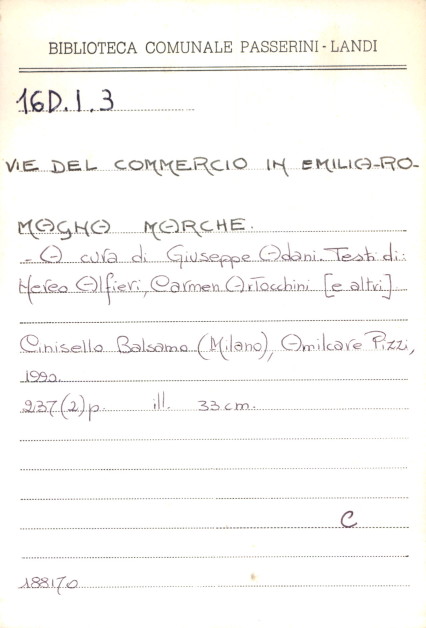 BIBLIOTECA COMUNALE PASSERINI-LANDI
16D.I.3
VIE DEL COMMERCIO IN EMILIA-RO-
MAGNA MARCHE.
- A cura di Giuseppe Adani. Testi di:
Nereo Alfieri, Carmen Artocchini [e altri]
Cinisello Balsamo (Milano), Amilcare Pizzi,
1990.
237(2)p. ill. 33cm.
C
188170